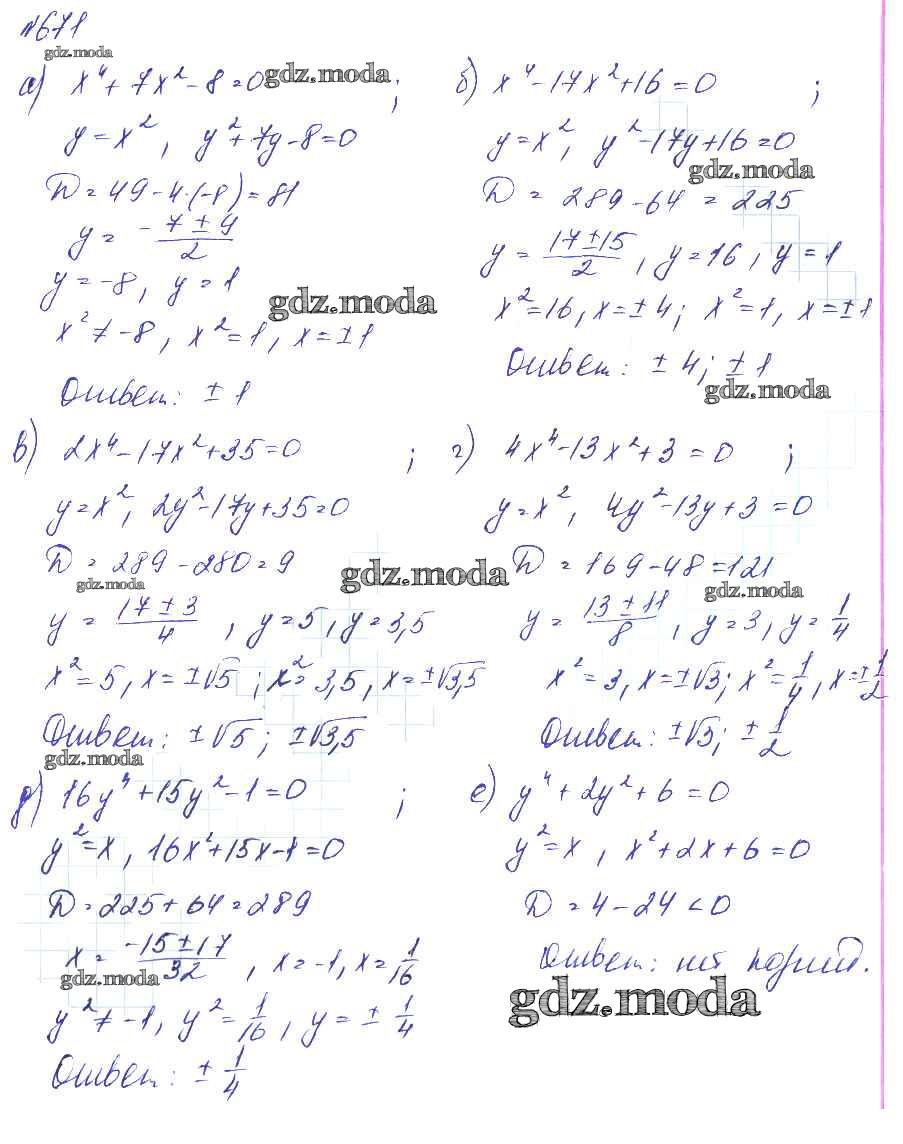 №671
gdz.moda
а) x⁴ + 7x² - 8 = 0 ;
gdz.moda
y = x², y² + 7y - 8 = 0
D = 49 - 4·(-8) = 81
y = -7 ± 9 / 2
y = -8, y = 1
gdz.moda
x² ≠ -8, x² = 1, x = ±1
Ответ: ± 1
б) x⁴ - 17x² + 16 = 0 ;
y = x², y² - 17y + 16 = 0
gdz.moda
D = 289 - 64 = 225
y = 17 ± 15 / 2, y = 16, y = 1
x² = 16, x = ± 4; x² = 1, x = ± 1
Ответ: ± 4; ± 1
gdz.moda
в) 2x⁴ - 17x² + 35 = 0 ;
y = x², 2y² - 17y + 35 = 0
D = 289 - 280 = 9
gdz.moda
gdz.moda
y = 17 ± 3 / 4, y = 5, y = 3,5
x² = 5, x = ±√5; x² = 3,5, x = ±√3,5
Ответ: ±√5; ±√3,5
gdz.moda
г) 4x⁴ - 13x² + 3 = 0 ;
y = x², 4y² - 13y + 3 = 0
D = 169 - 48 = 121
gdz.moda
y = 13 ± 11 / 8, y = 3, y = 1/4
x² = 3, x = ±√3; x² = 1/4, x = ± 1/2
Ответ: ±√3; ± 1/2
д) 16y⁴ + 15y² - 1 = 0 ;
y² = x, 16x² + 15x - 1 = 0
D = 225 + 64 = 289
x = -15 ± 17 / 32, x = -1, x = 1/16
gdz.moda
y² ≠ -1, y² = 1/16, y = ± 1/4
Ответ: ± 1/4
е) y⁴ + 2y² + 6 = 0
y² = x, x² + 2x + 6 = 0
D = 4 - 24 < 0
Ответ: нет корней.
gdz.moda